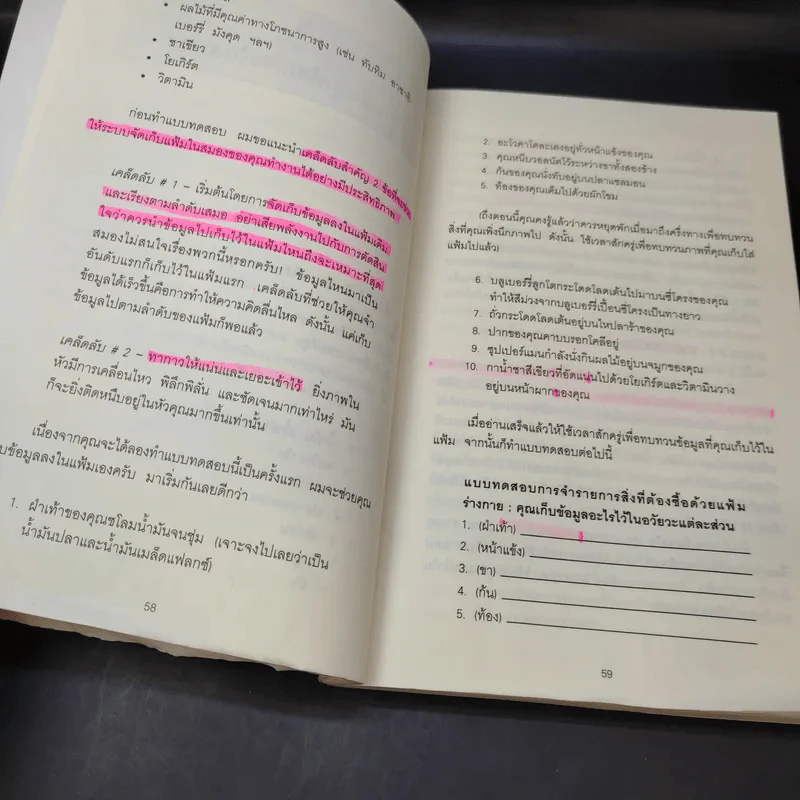 • ผลไม้ที่มีคุณค่าทางโภชนาการสูง (เช่น ทับทิม อาซาอิ
เบอร์รี่ มังคุด ฯลฯ)
• ชาเขียว
• โยเกิร์ต
• วิตามิน
ก่อนทำแบบทดสอบ ผมขอแนะนำเคล็ดลับสำคัญ 2 ข้อที่จะช่วย
ให้ระบบจัดเก็บแฟ้มในสมองของคุณทำงานได้อย่างมีประสิทธิภาพ
เคล็ดลับ # 1 – เริ่มต้นโดยการจัดเก็บข้อมูลลงในแฟ้มเดิม
และเรียงตามลำดับเสมอ อย่าเสียพลังงานไปกับการตัดสิน
ใจว่าควรนำข้อมูลไปเก็บไว้ในแฟ้มไหนถึงจะเหมาะที่สุด
สมองไม่สนใจเรื่องพวกนี้หรอกครับ! ข้อมูลไหนมาเป็น
อันดับแรกก็เก็บไว้ในแฟ้มแรก เคล็ดลับที่ช่วยให้คุณจำ
ข้อมูลได้เร็วขึ้นคือการทำให้ความคิดลื่นไหล ดังนั้น แค่เก็บ
ข้อมูลไปตามลำดับของแฟ้มก็พอแล้ว
เคล็ดลับ # 2 – ทากาวให้แน่นและเยอะเข้าไว้ ยิ่งภาพใน
หัวมีการเคลื่อนไหว พิลึกพิลั่น และชัดเจนมากเท่าไหร่ มัน
ก็จะยิ่งติดหนึบอยู่ในหัวคุณมากขึ้นเท่านั้น
เนื่องจากคุณจะได้ลองทำแบบทดสอบนี้เป็นครั้งแรก ผมจะช่วยคุณ
บข้อมูลลงในแฟ้มเองครับ มาเริ่มกันเลยดีกว่า
1. ฝ่าเท้าของคุณชโลมน้ำมันจนชุ่ม (เจาะจงไปเลยว่าเป็น
น้ำมันปลาและน้ำมันเมล็ดแฟลกซ์)
58
2. อะโวคาโดละเลงอยู่ทั่วหน้าแข้งของคุณ
3 คุณหนีบวอลนัตไว้ระหว่างขาทั้งสองข้าง
4. ก้นของคุณนั่งทับอยู่บนปลาแซลมอน
5. ท้องของคุณเต็มไปด้วยผักโขม
(ถึงตอนนี้คุณคงรู้แล้วว่าควรหยุดพักเมื่อมาถึงครึ่งทางเพื่อทบทวน
สิ่งที่คุณเพิ่งนึกภาพไป ดังนั้น ใช้เวลาสักครู่เพื่อทบทวนภาพที่คุณเก็บใส่
แฟ้มไปแล้ว)
6. บลูเบอร์รี่ลูกโตกระโดดโลดเต้นไปมาบนซี่โครงของคุณ
ทำให้สีม่วงจากบลูเบอร์รี่เปื้อนซี่โครงเป็นทางยาว
7. ถั่วกระโดดโลดเต้นอยู่บนไหปลาร้าของคุณ
8. ปากของคุณคาบบรอกโคลีอยู่
9. ซุปเปอร์แมนกำลังนั่งกินผลไม้อยู่บนจมูกของคุณ
10. กาน้ำชาสีเขียวที่อัดแน่นไปด้วยโยเกิร์ตและวิตามินวาง
อยู่บนหน้าผากของคุณ
เมื่ออ่านเสร็จแล้วให้ใช้เวลาสักครู่เพื่อทบทวนข้อมูลที่คุณเก็บไว้ใน
แฟ้ม จากนั้นก็ทำแบบทดสอบต่อไปนี้
แบบทดสอบการจำรายการสิ่งที่ต้องซื้อด้วยแฟ้ม
ร่างกาย : คุณเก็บข้อมูลอะไรไว้ในอวัยวะแต่ละส่วน
1. (ฝ่าเท้า)
2. (หน้าแข้ง)
3. (ขา)
4. (ก้น)
5. (ท้อง)
59